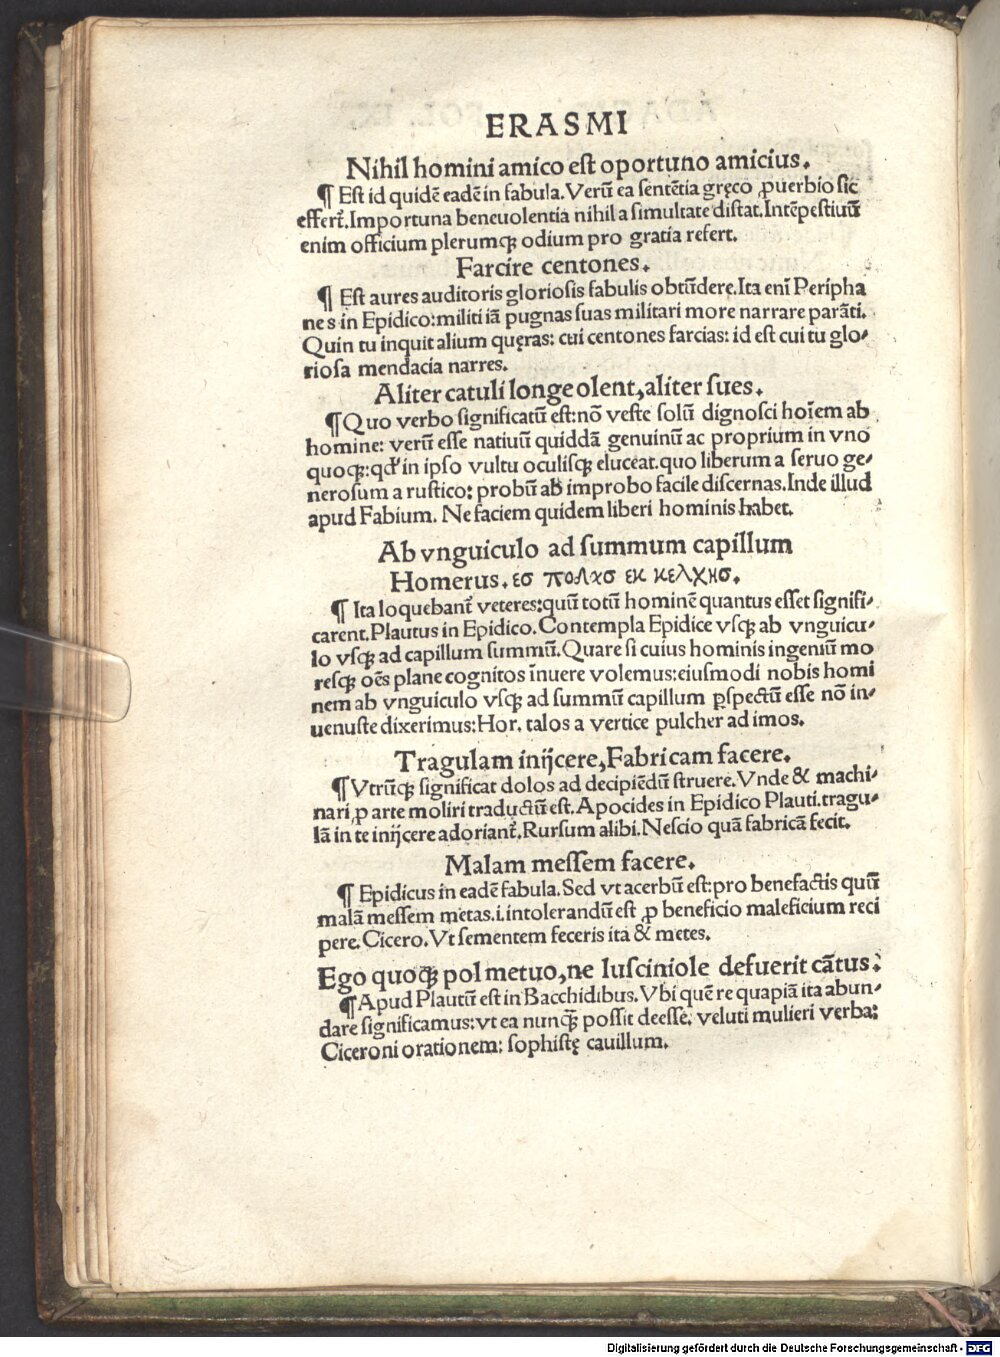 ERASMI
Nihil homini amico est oportuno amicius.
¶ Est id quidē eadē in fabula. Verū ea sentētia gręco ꝓuerbio sic
effert᷑. Importuna beneuolentia nihil a simultate distat. Intēpestiuū
enim officium plerumqꝫ odium pro gratia refert.
Farcire centones.
¶ Est aures auditoris gloriosis fabulis obtūdere. Ita enī Peripha
nes in Epidico: militi iā pugnas suas militari more narrare parāti.
Quin tu inquit alium quęras: cui centones farcias: id est cui tu glo⸗
riosa mendacia narres.
Aliter catuli longe olent, aliter sues.
¶ Quo verbo significatū est: nō veste solū dignosci hoīem ab
homine: verū esse natiuū quiddā genuinū ac proprium in vno
quoqꝫ: qd' in ipso vultu oculisqꝫ eluceat. quo liberum a seruo ge⸗
nerosum a rustico: probū ab improbo facile discernas. Inde illud
apud Fabium. Ne faciem quidem liberi hominis habet.
Ab vnguiculo ad summum capillum
Homerus. εσ πολιοσ εκ κελχησ.
¶ Ita loquebant᷑ veteres: quū totū hominē quantus esset signifi⸗
carent. Plautus in Epidico. Contempla Epidice vsqꝫ ab vnguicu⸗
lo vsqꝫ ad capillum summū. Quare si cuius hominis ingeniū mo
resqꝫ oēs plane cognitos īnuere volemus: eiusmodi nobis homi
nem ab vnguiculo vsqꝫ ad summū capillum ꝑspectū esse nō in⸗
uenuste dixerimus: Hor. talos a vertice pulcher ad imos.
Tragulam inijcere, Fabricam facere.
¶ Vtrūqꝫ significat dolos ad decipiēdū struere. Vnde & machi⸗
nari ꝓ arte moliri traductū est. Apocides in Epidico Plauti. tragu⸗
lā in te inijcere adoriant᷑. Rursum alibi. Nescio quā fabricā fecit.
Malam messem facere.
¶ Epidicus in eadē fabula. Sed vt acerbū est: pro benefactis quū
malā messem metas. i. intolerandū est ꝓ beneficio maleficium reci
pere. Cicero. Vt sementem feceris ita & metes.
Ego quoqꝫ pol metuo, ne lusciniole defuerit cātus.
¶ Apud Plautū est in Bacchidibus. Vbi quē re quapiā ita abun⸗
dare significamus: vt ea nunqꝫ̄ possit deesse. veluti mulieri verba:
Ciceroni orationem: sophistę cauillum.
Digitalisierung gefördert durch die Deutsche Forschungsgemeinschaft - DFG